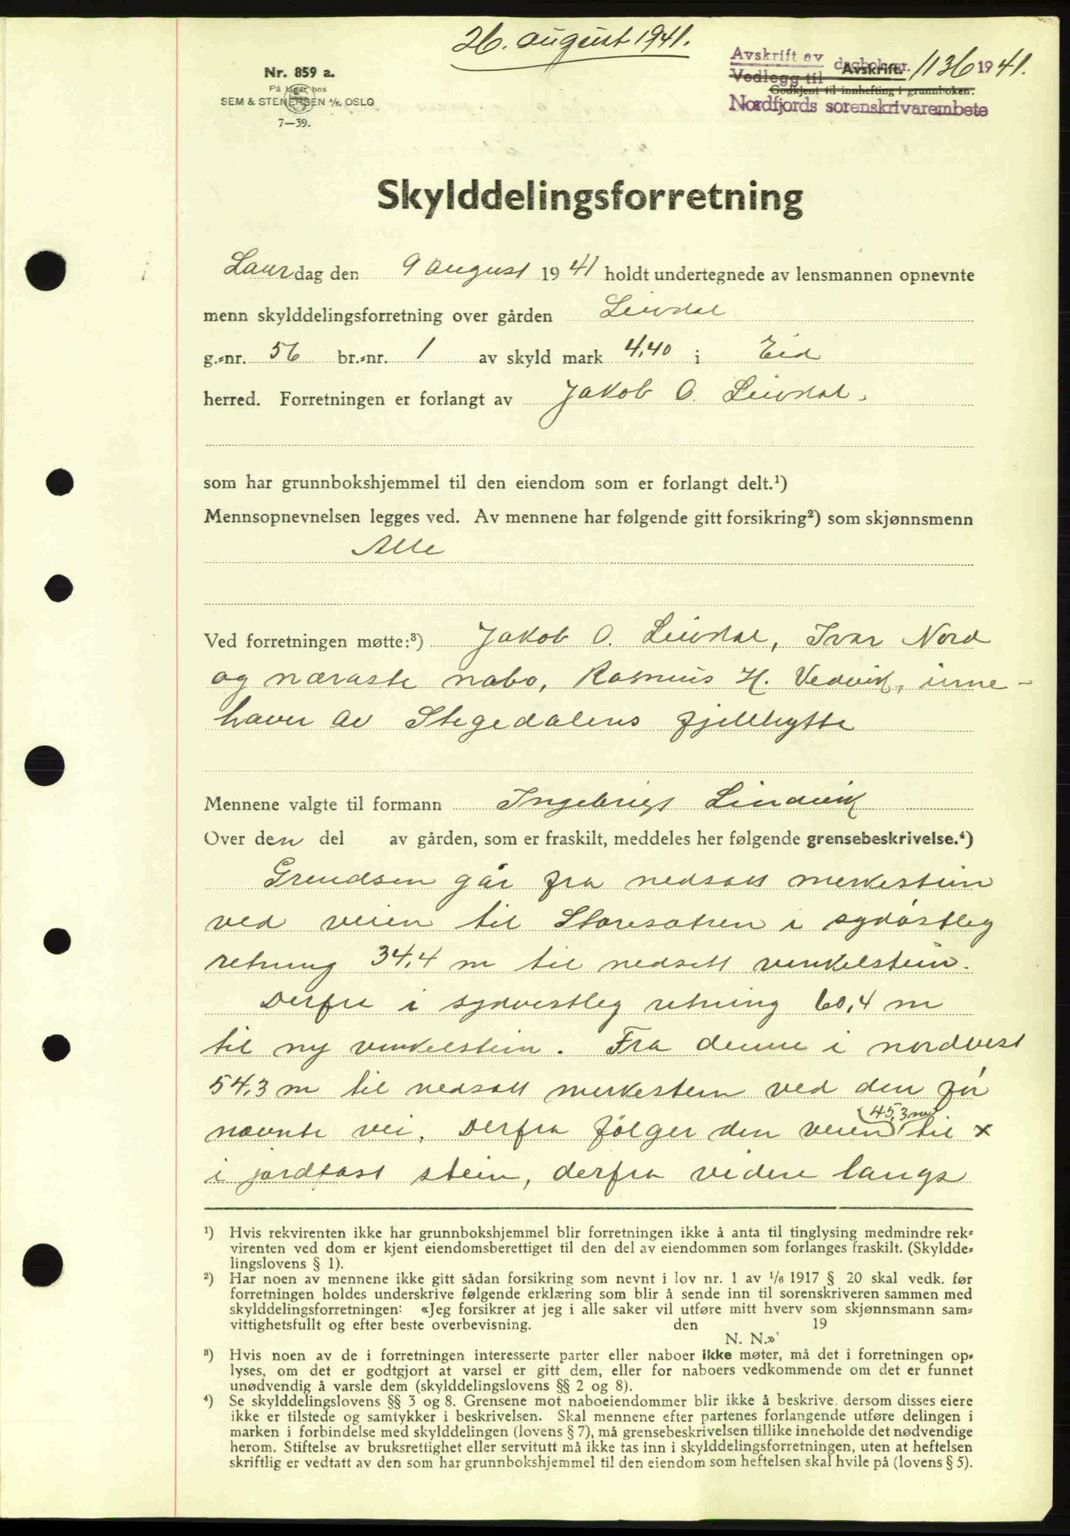 26. august 1941.
Avskrift av dagbok nr. 1136 1941.
Vedlegg til Avskrift.
Godkjent til innhefting i grunnboken.
Nordfjords sorenskrivarembete
Nr. 859 a.
På lager hos
SEM & STENERSEN A/S, OSLO
7—39.
Skylddelingsforretning
Laurdag den 9 august 1941 holdt undertegnede av lensmannen opnevnte
menn skylddelingsforretning over gården Leivdal
g.-nr. 56 br.-nr. 1 av skyld mark 4,40 i Eid
herred. Forretningen er forlangt av Jakob O. Leivdal.
som har grunnbokshjemmel til den eiendom som er forlangt delt.¹)
Mennsopnevnelsen legges ved. Av mennene har følgende gitt forsikring²) som skjønnsmenn
Alle
Ved forretningen møtte:³) Jakob O. Leivdal, Ivar Nord
og næraste nabo, Rasmus H. Vedvik, inne-
haver av Stegedalens fjellhytte
Mennene valgte til formann Ingebrigt Lindvik
Over den del av gården, som er fraskilt, meddeles her følgende grensebeskrivelse.⁴)
Grendsen går fra nedsatt merkestein
ved veien til Storesætren i sydøstleg
retning 34,4 m til nedsett vinkelstein.
Derfra i sydvestleg retning 60,4 m
til ny vinkelstein. Fra denne i nordvest
54,3 m til nedsatt merkestein ved den før
nævnte vei. Derfra følger den veien (45,3 m) til x
i jordfast stein, derfra videre langs
¹) Hvis rekvirenten ikke har grunnbokshjemmel blir forretningen ikke å anta til tinglysing medmindre rek-
virenten ved dom er kjent eiendomsberettiget til den del av eiendommen som forlanges fraskilt. (Skyldde-
lingslovens § 1).
²) Har noen av mennene ikke gitt sådan forsikring som nevnt i lov nr. 1 av 1/6 1917 § 20 skal vedk. før
forretningen holdes underskrive følgende erklæring som blir å sende inn til sorenskriveren sammen med
skylddelingsforretningen: «Jeg forsikrer at jeg i alle saker vil utføre mitt hverv som skjønnsmann sam-
vittighetsfullt og efter beste overbevisning. den 19
N. N.»'
³) Hvis noen av de i forretningen interesserte parter eller naboer ikke møter, må det i forretningen op-
lyses, om det er godtgjort at varsel er gitt dem, eller for naboers vedkommende om det er funnet
unødvendig å varsle dem (skylddelingslovens §§ 2 og 8).
⁴) Se skylddelingslovens §§ 3 og 8. Grensene mot naboeiendommer blir ikke å beskrive, dersom disses eiere
ikke er tilstede og samtykker i beskrivelsen. Skal mennene efter partenes forlangende utføre delingen i
marken i forbindelse med skylddelingen (lovens § 7), må grensebeskrivelsen tillike inneholde det nødvendige
herom. Stiftelse av bruksrettighet eller servitutt må ikke tas inn i skylddelingsforretningen, uten at heftelsen
skriftlig er vedtatt av den som har grunnbokshjemmel til den eiendom som heftelsen skal hvile på (lovens § 5).